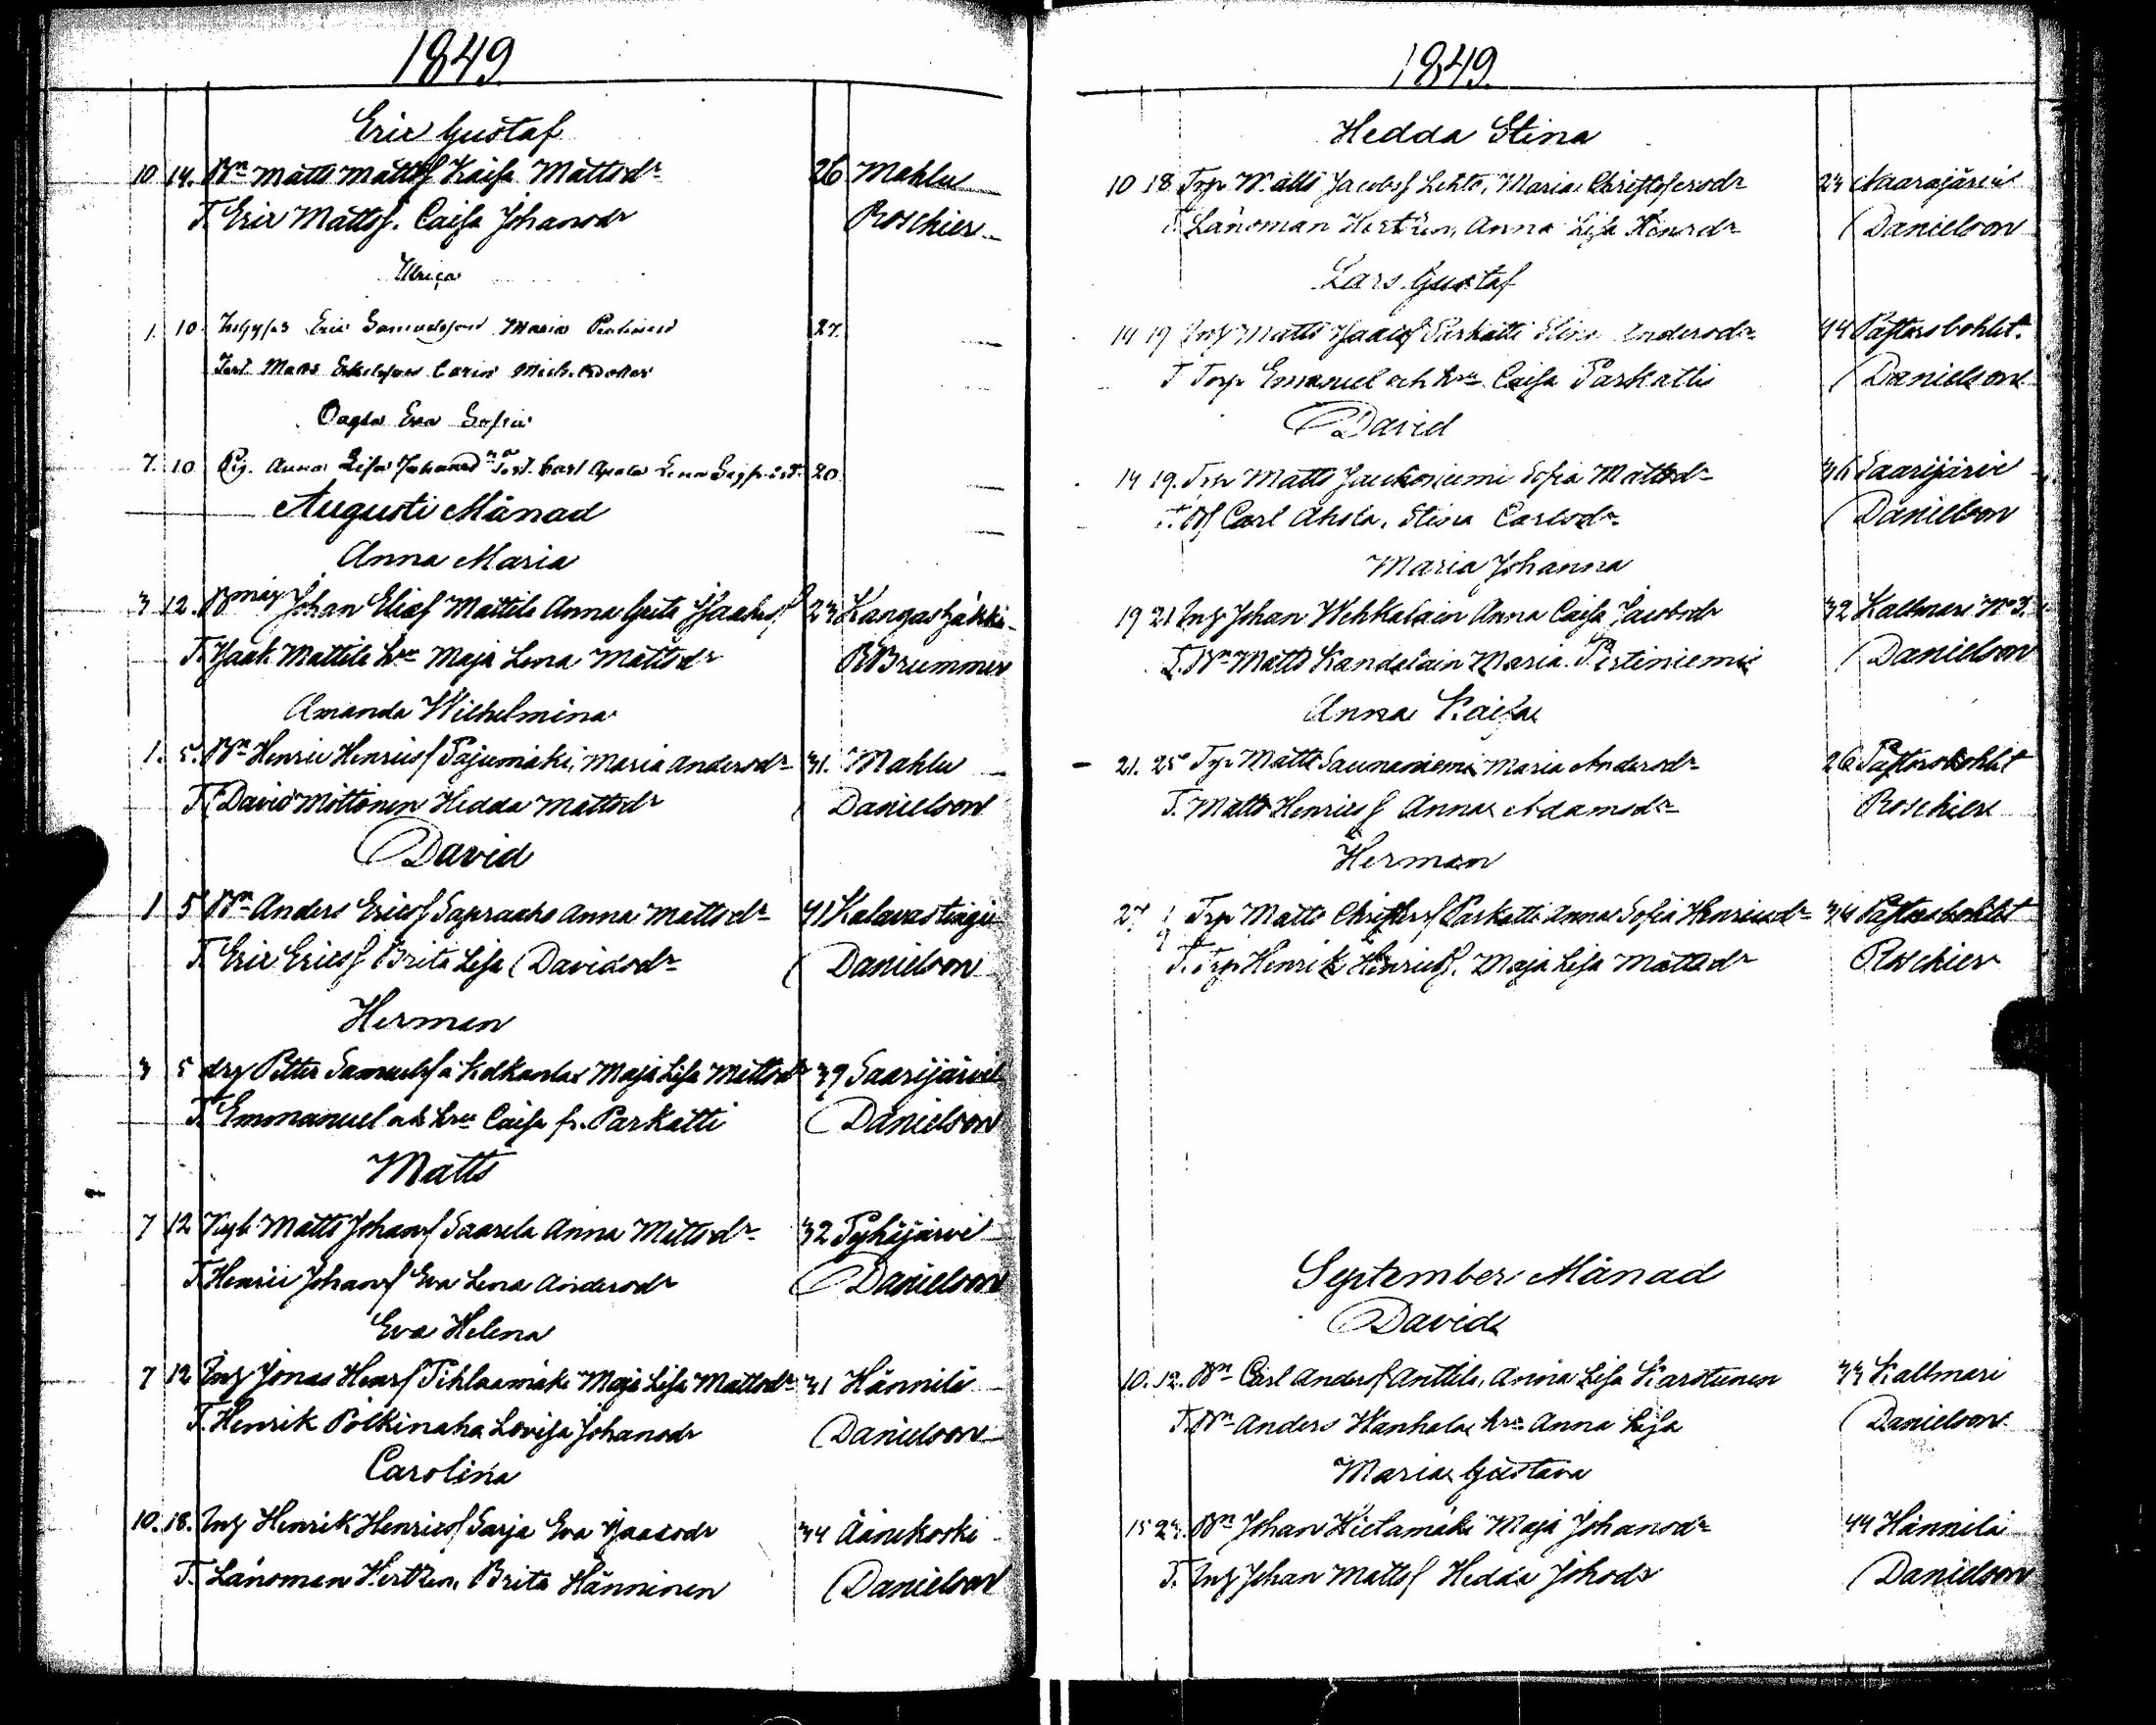 1849
Eric Gustaf
10 14. Bn Matts Mattsf Kaisa Mattsdr 26 Mahlu
T. Eric Mattsf. Caisa Johansdr Roschier
Ulrica
1. 10 Eric Samuelsson Maria 27.
Test. Mats Carin Mich.
Oägta Eva Sofia
7. 10 Pig. Anna Lisa Johansd Test. Carl Lena 20.
Augusti Månad
Anna Maria
3 12. Bmåg Johan Eliaf Mattila Anna Greta 23 Kangashäkki
T. Isaak Mattila hru Maja Lena Mattsdr Brummer
Amanda Wilhelmina
1. 5. Bn Henric Henricsf Pajumäki, Maria Andersdr 31. Mahlu
T. David Möttönen Hedda Mattsdr Danielson
David
1 5 Bn Anders Ericsf Anna Mattsdr 41
T. Eric Ericsf Brita Lisa Davidsdr Danielson
Herman
3 5 Petter Samuelsf Maja Lisa Mattsdr 39 Saarijärvi
T. Emmanuel och hru Caisa fr. Parkatti Danielson
Matts
7 12 Matts Johansf Saarela Anna Mattsdr 32 Pyhäjärvi
T. Henric Johansf Eva Lena Andersdr Danielson
Eva Helena
7 12 Ing Jonas Henrsf Pihlaamäki Maja Lisa Mattsdr 31 Hännilä
T. Henrik Pölkinaho Lovisa Johansdr Danielson
Carolina
10. 18. Ing Henrik Henricsf Sarja Eva Isacsdr 34 Äänekoski
T. Länsman Hertzen, Brita Hänninen Danielson
1849.
Hedda Stina
10 18 Trp Matts Jacobsf Lehto, Maria Christofersdr 23 Naarajärvi
T. Länsman Hertzen, Anna Lisa Henrsdr Danielson
Lars Gustaf
14 19 Ing Matts Isaacsf Parkatti Stina Andersdr 44 Pastorsbohlet.
T Torp Emanuel och hru Caisa Parkatti Danielson
David
14 19. Trp Matts Jaukoniemi Sofia Mattsdr 36 Saarijärvi
T. Carl Ahola, Stina Carlsdr Danielson
Maria Johanna
19 21 Ing Johan Wehkalain Anna Caisa Jacobsdr 32 Kallmari No
T. Bn Matts Kandelain Maria Pirtiniemi Danielson
Anna Kaisa
21. 25 Trp Matts Saunaniemi Maria Andersdr 26 Pastorsbohlet
T. Matts Henricsf Anna Adamsdr Roschier
Herman
27 Trp Matts Christersf Parkatti Anna Sofia Henricsdr 34 Pastorsbohlet
T. Trp Henrik Henricsf. Maja Lisa Mattsdr Roschier
September Månad
David
10. 12. Bn Carl Andersf Anttila, Anna Lisa Karstunen 33 Kallmari
T. Bn Anders Hanhala hru Anna Lisa Danielson
Maria Gustava
15 23. Bn Johan Hietamäki Maja Johansdr 44 Hännilä
T. Ing Johan Mattsf Hedda Johsdr Danielson